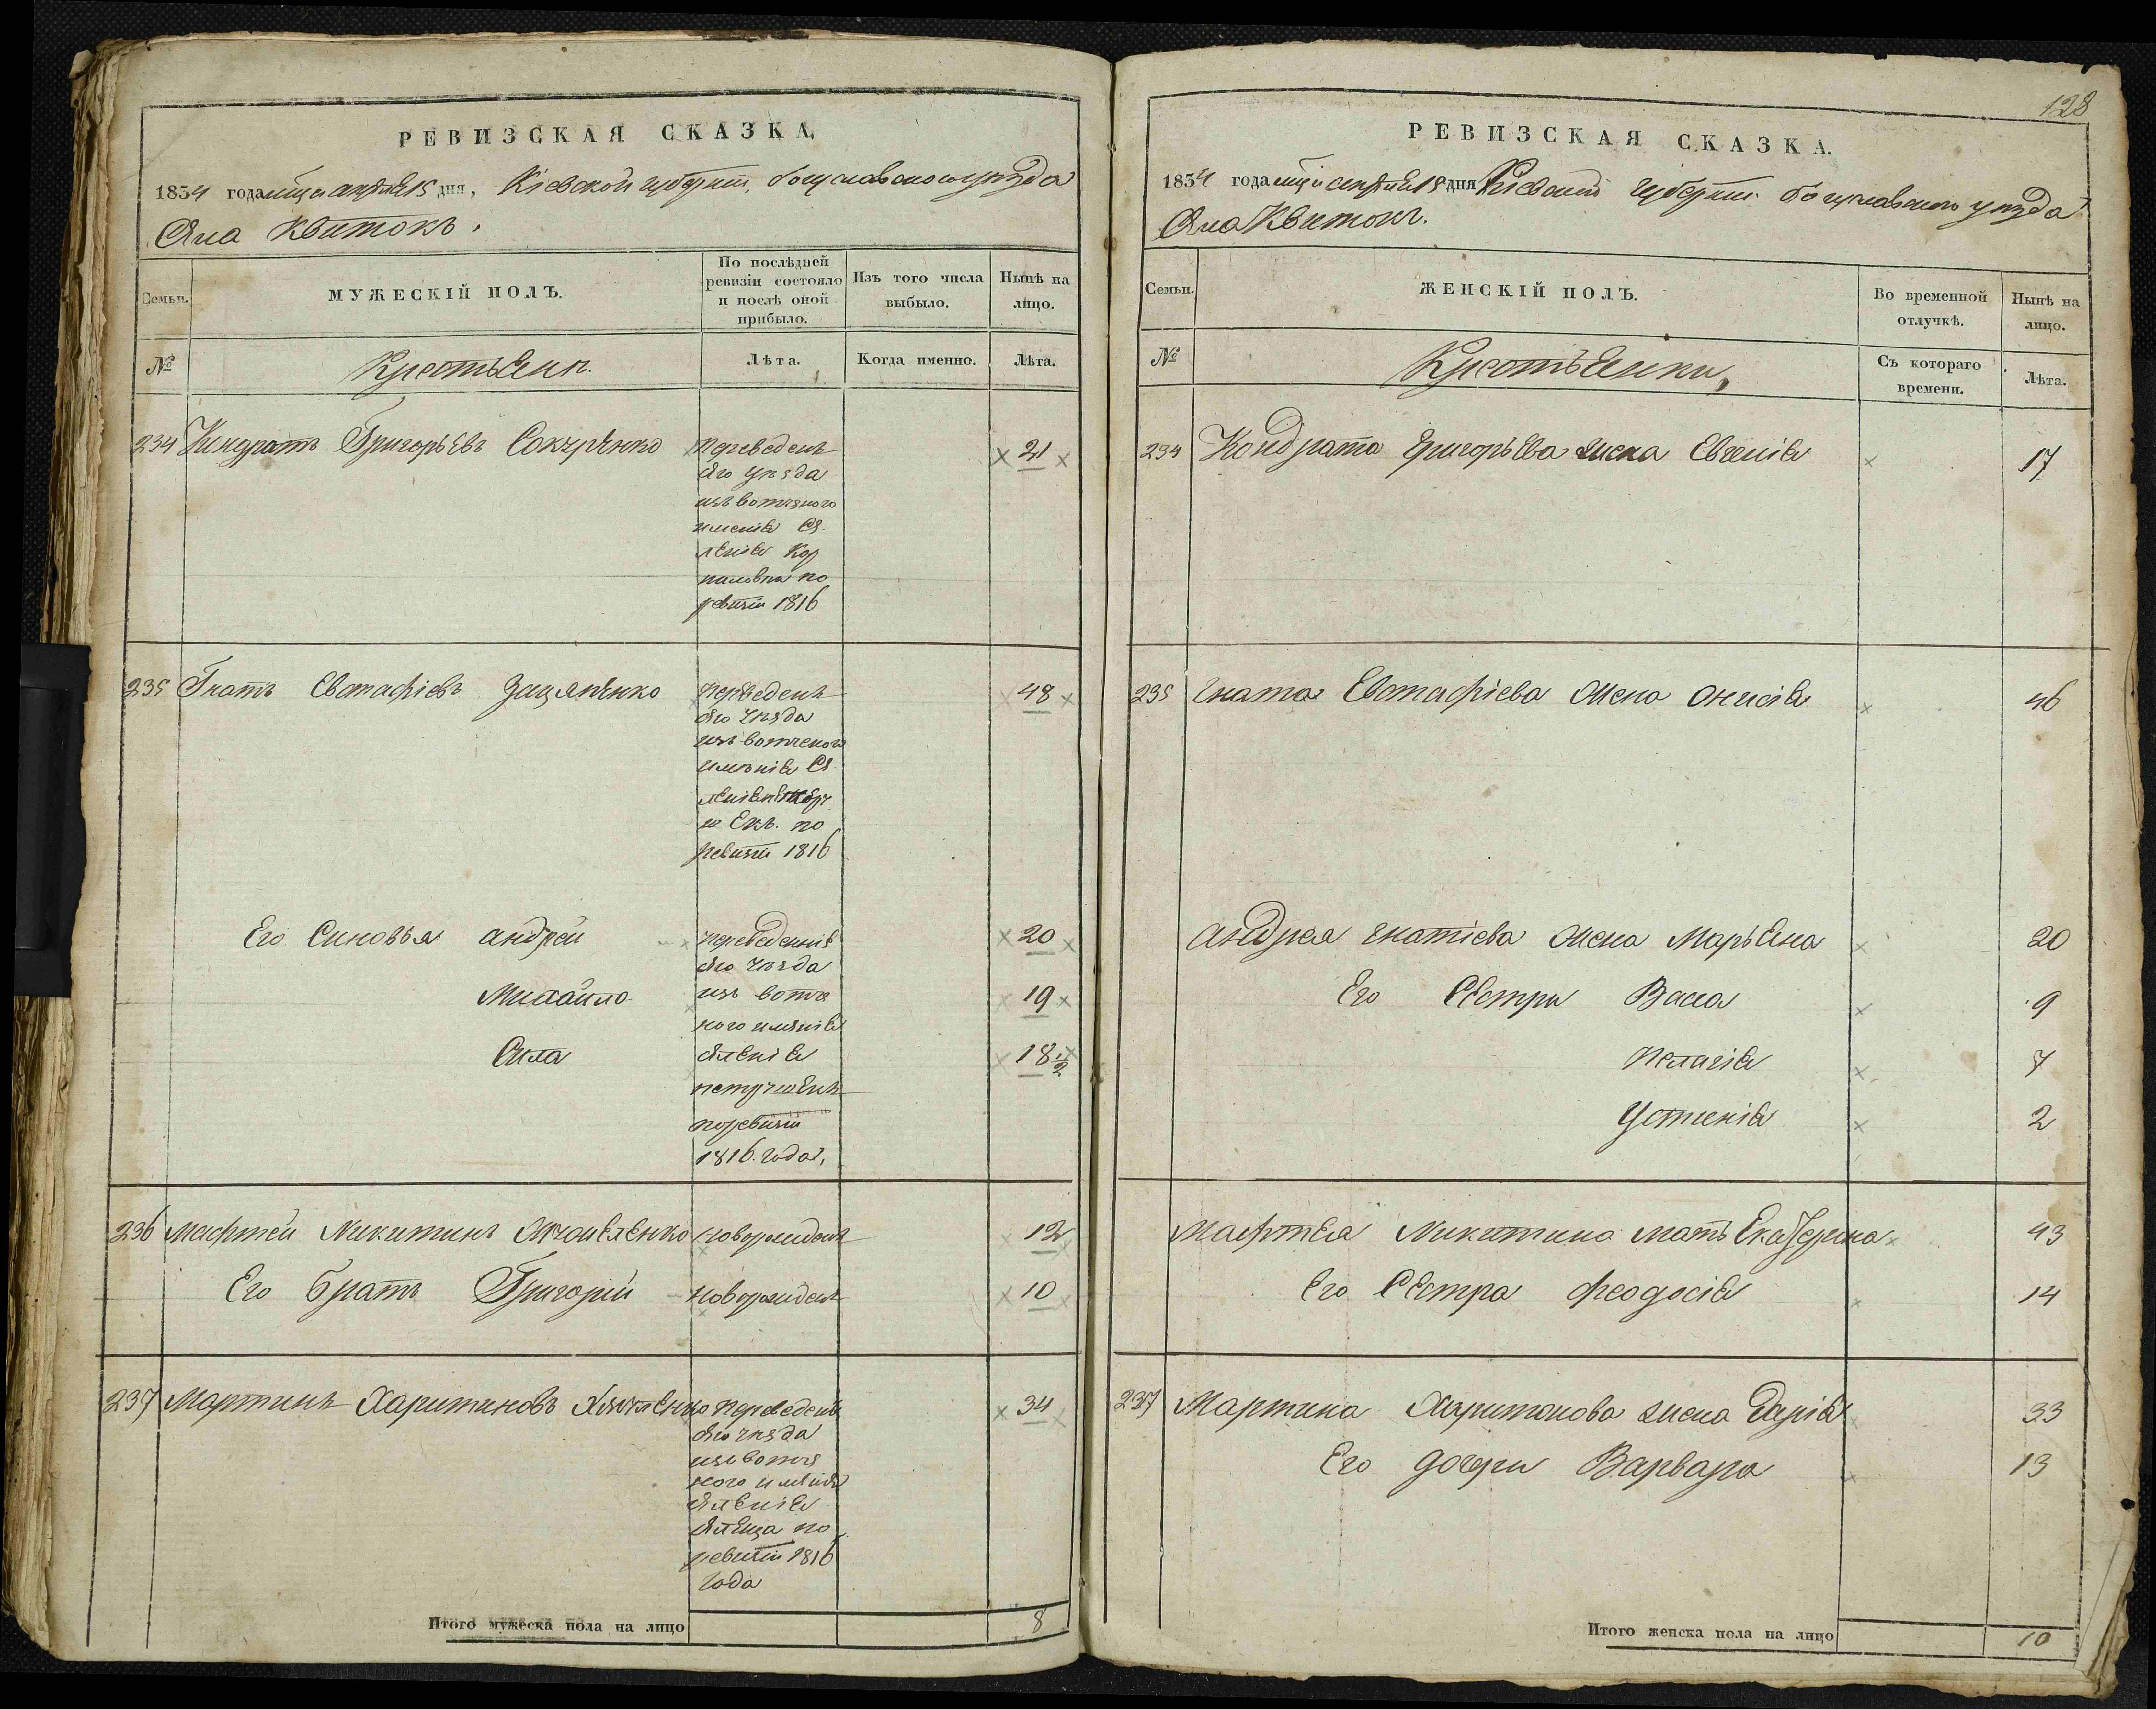 РЕВИЗСКАЯ СКАЗКА,
1834 года мца апреля 15 дня, Кіевской губерніи, богуславского уезда
Села Квитокъ.
Семьи.
МУЖЕСКІЙ ПОЛЪ.
По послѣдней ревизіи состояло и послѣ оной прибыло.
Изъ того числа выбыло.
Нынѣ на лицо.
№
Крестьяне.
Лѣта.
Когда именно.
Лѣта.
234 Григорьевъ переведенъ 21
сего уезда
изъ вотчиного
именія се
ленія Кор
по
ревизіи 1816
235 Гнатъ Евстафіевъ переведенъ 48
сего уезда
изъ вотченого
именія се
по
ревизіи 1816
Его Синовья андрей переведенніе 20
сего уезда
Михайло изъ вотч 19
ного именія
Сила селенія 18 1/2
поревизіи
1816. года,
236 Мафтей Никитинъ новорожденъ 12
Его братъ Григорій новорожденъ 10
237 Мартинъ Харитоновъ переведенъ 34
сего уезда
изъ вотче
ного именія
селенія
по
ревизіи 1816
года
Итого мужеска пола на лицо 8
128
РЕВИЗСКАЯ СКАЗКА.
1834 года мца апреля 15 дня Кіевской губерніи богуславского уезда
Села Квитокъ.
Семьи.
ЖЕНСКІЙ ПОЛЪ.
Во временной отлучкѣ.
Нынѣ на лицо.
№
Крестьянки,
Съ котораго времени.
Лѣта.
234 Кондрата григорьева жена Евгенія 17
235 гната Евстафіева жена Онисія 46
андрея гнатіева жена Марьяна 20
Его Сестри Васса 9
Пелагія 7
Устинія 2
Мафтея Никитина мать Екатерина 43
Его Сестра феодосія 14
237 Мартина Харитонова жена Дарія 33
Его дочери Варвара 13
Итого женска пола на лицо 10